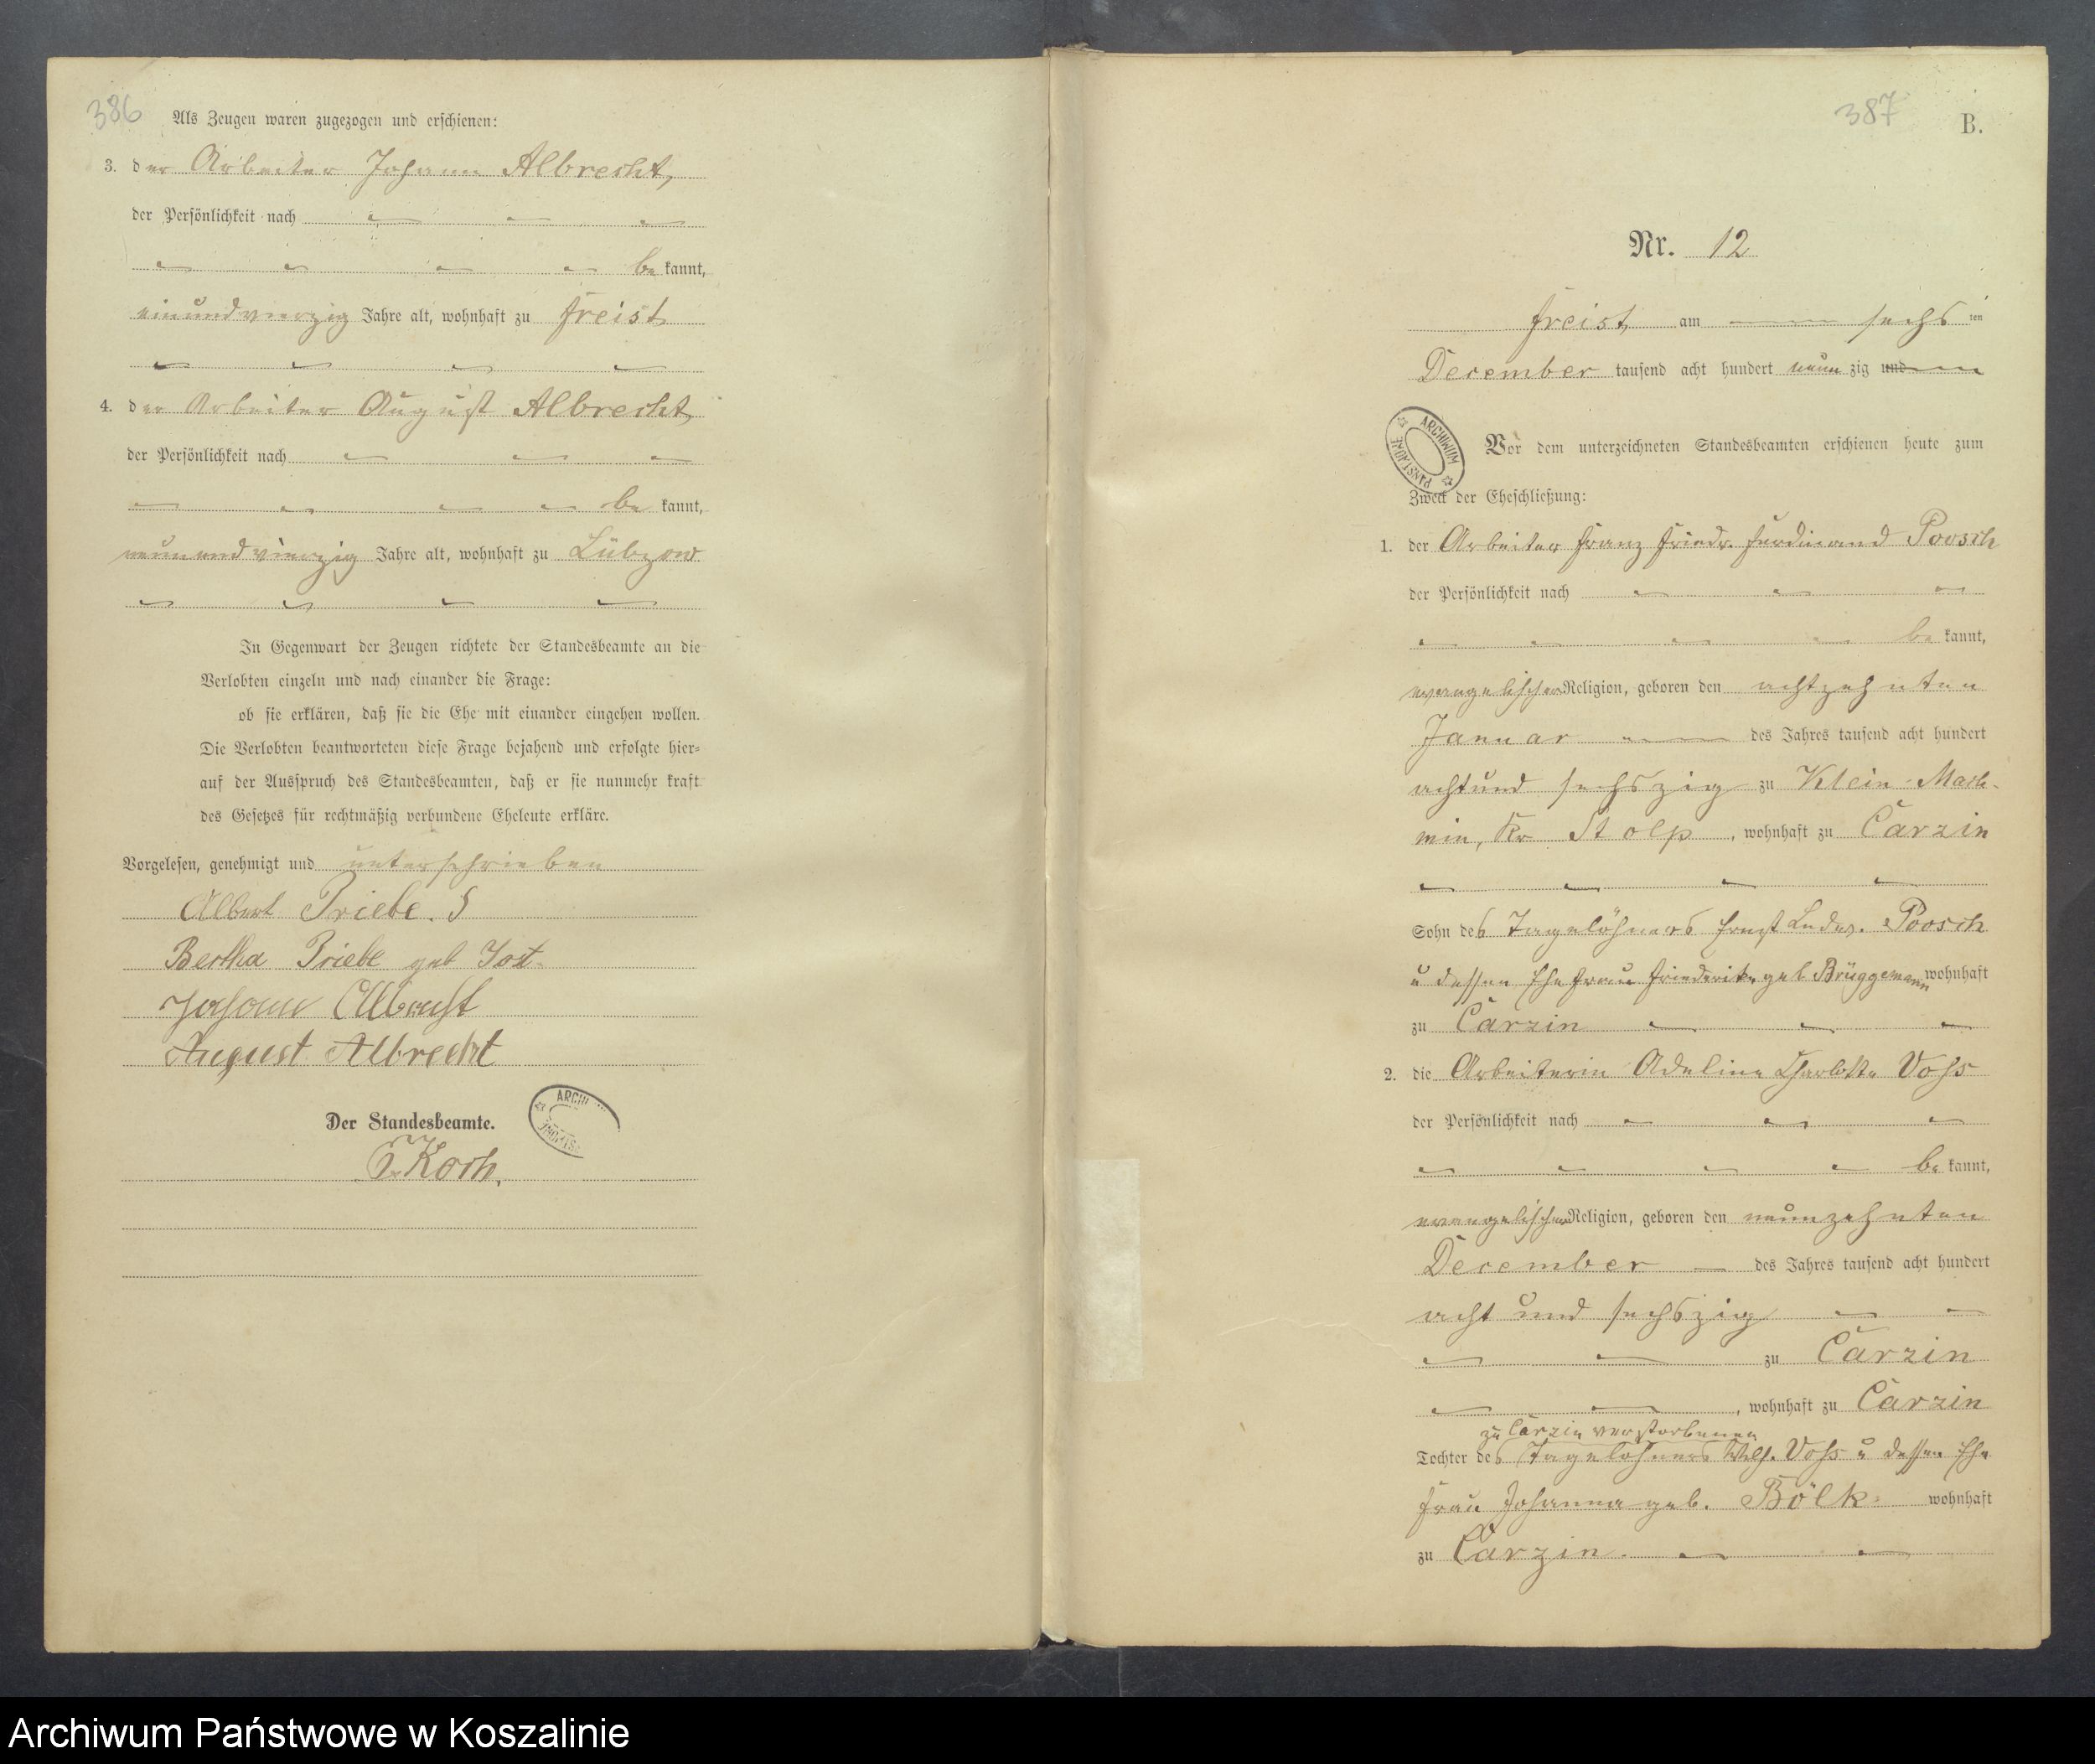 386
Als Zeugen waren zugezogen und erschienen:
3. der Arbeiter Johann Albrecht,
der Persönlichkeit nach
be kannt,
einundvierzig Jahre alt, wohnhaft zu Freist
4. der Arbeiter August Albrecht,
der Persönlichkeit nach
be kannt,
neunundvierzig Jahre alt, wohnhaft zu Lübzow
In Gegenwart der Zeugen richtete der Standesbeamte an die
Verlobten einzeln und nach einander die Frage:
ob sie erklären, daß sie die Ehe mit einander eingehen wollen.
Die Verlobten beantworteten diese Frage bejahend und erfolgte hier=
auf der Ausspruch des Standesbeamten, daß er sie nunmehr kraft
des Gesetzes für rechtmäßig verbundene Eheleute erkläre.
Vorgelesen, genehmigt und unterschrieben
Albert Priebe.
Bertha Priebe geb Jost
Johann Albrecht
August Albrecht
Der Standesbeamte.
Koch.
387
B.
Nr. 12
Freist am sechs ten
December tausend acht hundert neun zig und
ARCHIWUM PAŃSTWOWE
Vor dem unterzeichneten Standesbeamten erschienen heute zum
Zweck der Eheschließung:
1. der Arbeiter Franz Friedr. Ferdinand Poosch
der Persönlichkeit nach
be kannt,
evangelischer Religion, geboren den achtzehnten
Januar des Jahres tausend acht hundert
achtund sechszig zu Klein-Mach-
min, Kr. Stolp, wohnhaft zu Carzin
Sohn des Tagelöhners Ernst Ludw. Poosch
u dessen Ehefrau Friederike geb Brüggemann wohnhaft
zu Carzin
2. die Arbeiterin Adeline Charlotte Voss
der Persönlichkeit nach
be kannt,
evangelischer Religion, geboren den neunzehnten
December des Jahres tausend acht hundert
acht und sechszig
zu Carzin
, wohnhaft zu Carzin
zu Carzin verstorbenen
Tochter des Tagelöhners Wilh. Voss u dessen Ehe
frau Johanna geb. Bölk wohnhaft
zu Carzin.
Archiwum Państwowe w Koszalinie